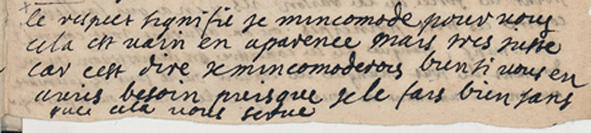 le respect signifie je mincomode pour vous
cela est vain en aparence mais tres juste
car cest dire je mincomoderois bien si vous en
aviés besoin puisque je le fais bien sans
que cela vous serve